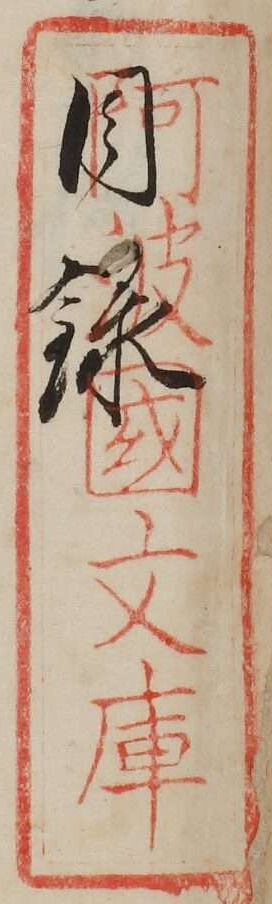 目録
阿波國文庫